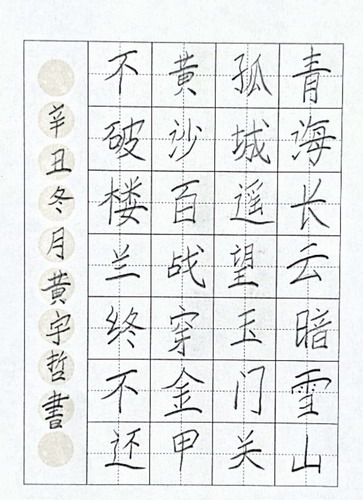 青海长云暗雪山
孤城遥望玉门关
黄沙百战穿金甲
不破楼兰终不还
辛丑冬月黄宇哲書